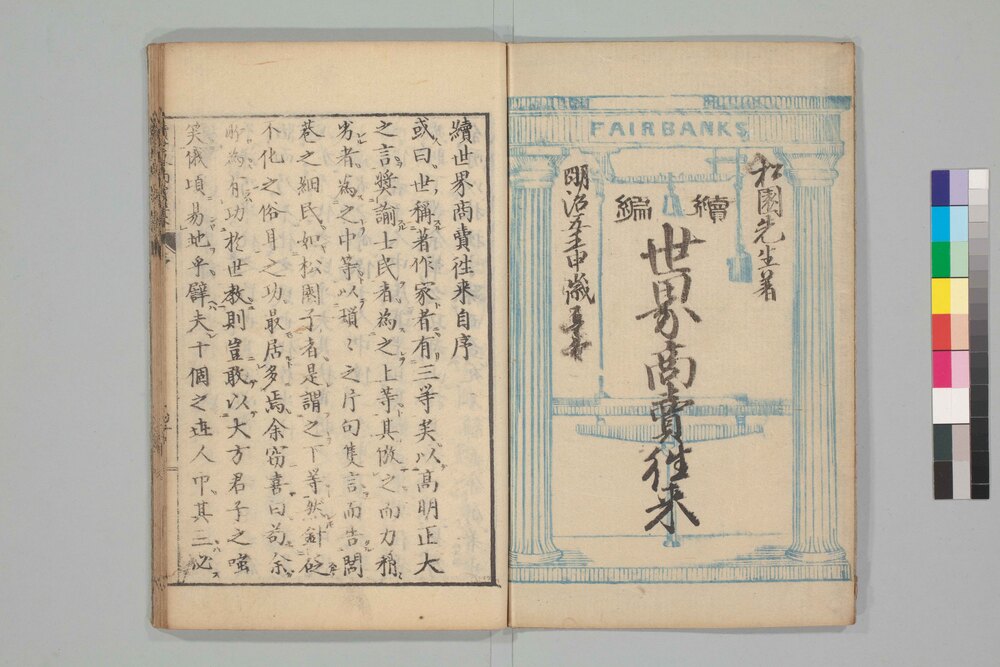 FAIRBANKS
松園先生著
續編
世界商賣往来
明治五壬申歳
續世界商賣往来自序
或曰世稱著作家者有三等矣以髙明正大
之言奬諭士民者為之上等其倣之而力稍
劣者為之中等以瑣〻之片句隻言而告閭
巷之細民如松園子者是謂之下等然針砭
不化之俗耳之功最居多焉余窃喜曰苟余
所為有功於世教則豈敢以大方君子之嗤
笑俄項易地乎譬夫十個之盗人中其三必